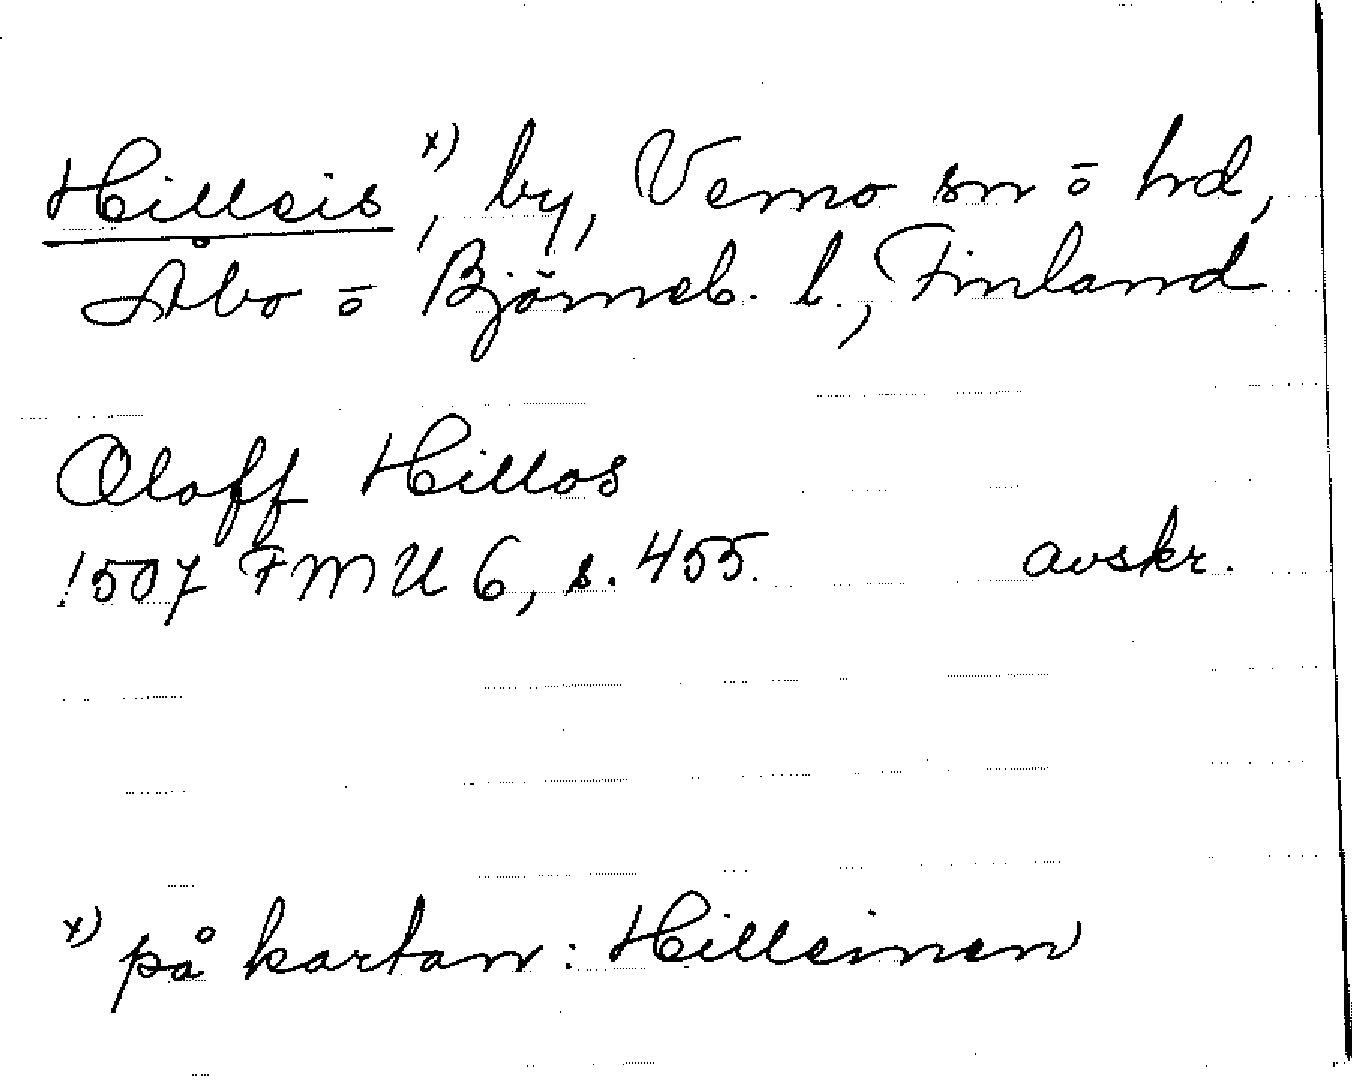 Hilleis x), by, Vemo sn ō hrd,
Åbo ō Björneb. l., Finland
Oloff Hillos
1507 FMU 6, s. 455. avskr.
x) på kartan: Hilleinen